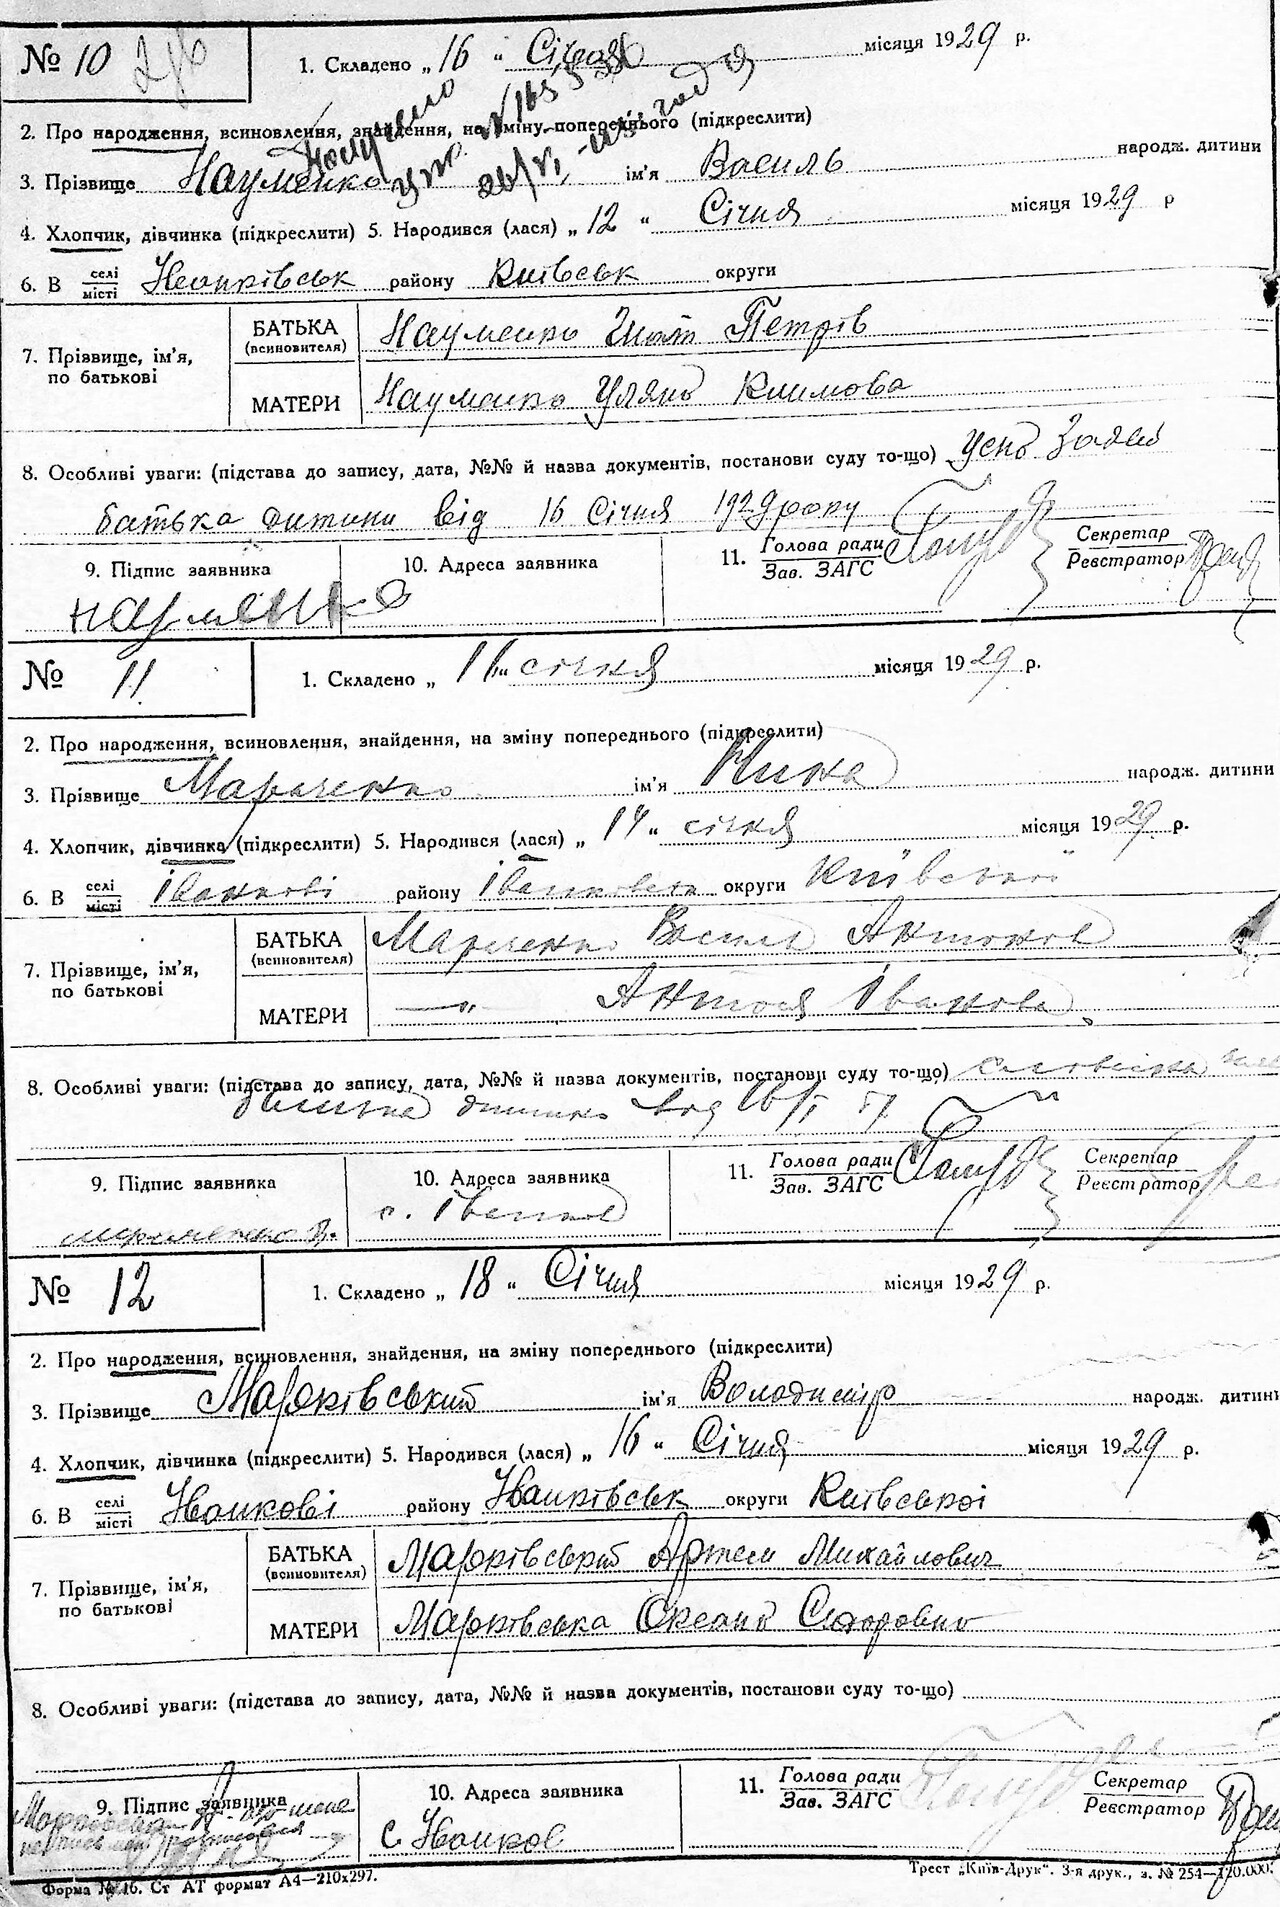 № 10 1. Складено „ 16 " Січня місяця 1929 р.
2. Про народження, всиновлення, знайдення, на зміну попереднього (підкреслити)
3. Прізвище Науменко ім'я Василь народж. дитини
4. Хлопчик, дівчинка (підкреслити) 5. Народився (лася) „ 12 " Січня місяця 1929 р
6. В селі місті району Київськ округи
7. Прізвище, ім'я, по батькові
БАТЬКА (всиновителя) Науменко Гнат Петрів
МАТЕРИ Науменко Уляна Климова
8. Особливі уваги: (підстава до запису, дата, №№ й назва документів, постанови суду то-що)
батька дитини від 16 Січня 1929 року
9. Підпис заявника 10. Адреса заявника 11. Голова ради Зав. ЗАГС Секретар Реєстратор
науменко
№ 11 1. Складено „ 16 " січня місяця 1929 р.
2. Про народження, всиновлення, знайдення, на зміну попереднього (підкреслити)
3. Прізвище Марченко ім'я Нина народж. дитини
4. Хлопчик, дівчинка (підкреслити) 5. Народився (лася) „ 14 " січня місяця 1929 р.
6. В селі місті Іванкові району округи Київської
7. Прізвище, ім'я, по батькові
БАТЬКА (всиновителя) Марченко Василь Антонов
МАТЕРИ — " — Іванова
8. Особливі уваги: (підстава до запису, дата, №№ й назва документів, постанови суду то-що)
батька дитини від 16/I
9. Підпис заявника 10. Адреса заявника 11. Голова ради Зав. ЗАГС Секретар Реєстратор
с. Іванков
№ 12 1. Складено „ 18 " Січня місяця 1929 р.
2. Про народження, всиновлення, знайдення, на зміну попереднього (підкреслити)
3. Прізвище Марківський ім'я Володимір народж. дитини
4. Хлопчик, дівчинка (підкреслити) 5. Народився (лася) „ 16 " Січня місяця 1929 р.
6. В селі місті Іванкові району Іванківськ округи Київської
7. Прізвище, ім'я, по батькові
БАТЬКА (всиновителя) Марківський Артем Михайлович
МАТЕРИ Марківська Оксана
8. Особливі уваги: (підстава до запису, дата, №№ й назва документів, постанови суду то-що)
9. Підпис заявника 10. Адреса заявника 11. Голова ради Зав. ЗАГС Секретар Реєстратор
с Іванков
Форма № 16. Ст АТ формат А4—210х297. Трест „Київ-Друк". 3-я друк., з. № 254—120.000.